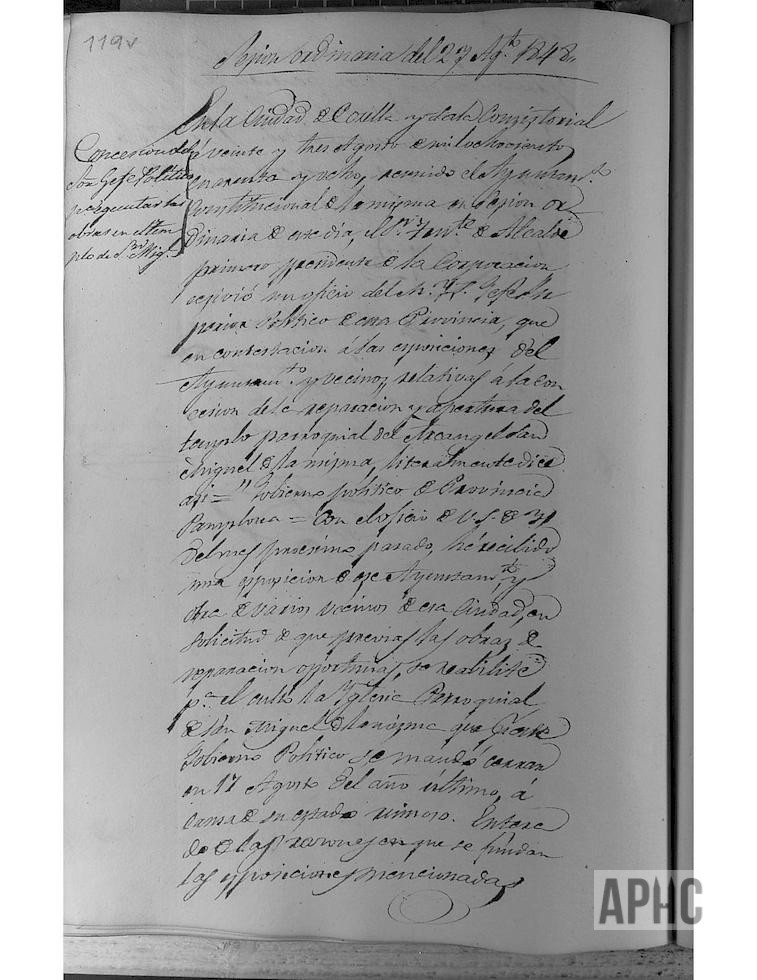 119v
Sesion ordinaria del 23 Agto 1848.
En la Ciudad de Corella y Sala Consistorial
á veinte y tres Agosto de mil ochociento
cuarenta y ocho, reunido el Ayuntamto
Constitucional de la misma en Sesion or
dinaria de este dia, el Sr Tente de Alcalde
primero presidente de la Corporacion
un oficio del M. Y. S. Gefe Su
perior Politico de esta Provincia, que
en contestacion á las esposiciones del
Ayuntamto y vecinos, relativas á la con
cesion de la reparacion y apertura del
templo parroquial del Arcangel San
Miguel de la misma, literalmente dice
asi = " Gobierno politico de Provincia
Pamplona = Con el oficio de V. S. de 31
del mes procsimo pasado, hé recibido
una esposicion de ese Ayuntamto y
otra de varios vecinos de esa Ciudad, en
solicitud de que previas las obras de
reparacion oportunas, se reabilite
pa el culto la Yglesia Parroquial
de San Miguel de la misma que este
Gobierno Politico se mandó cerrar
en 17 Agosto del año último, á
causa de su estado ruinoso. Entera
do de las razones en que se fundan
las esposiciones mencionadas
Concesion del
Sor Gefe Politico
pa egecutar las
obras en el tem
plo de Sn Migl
APHC